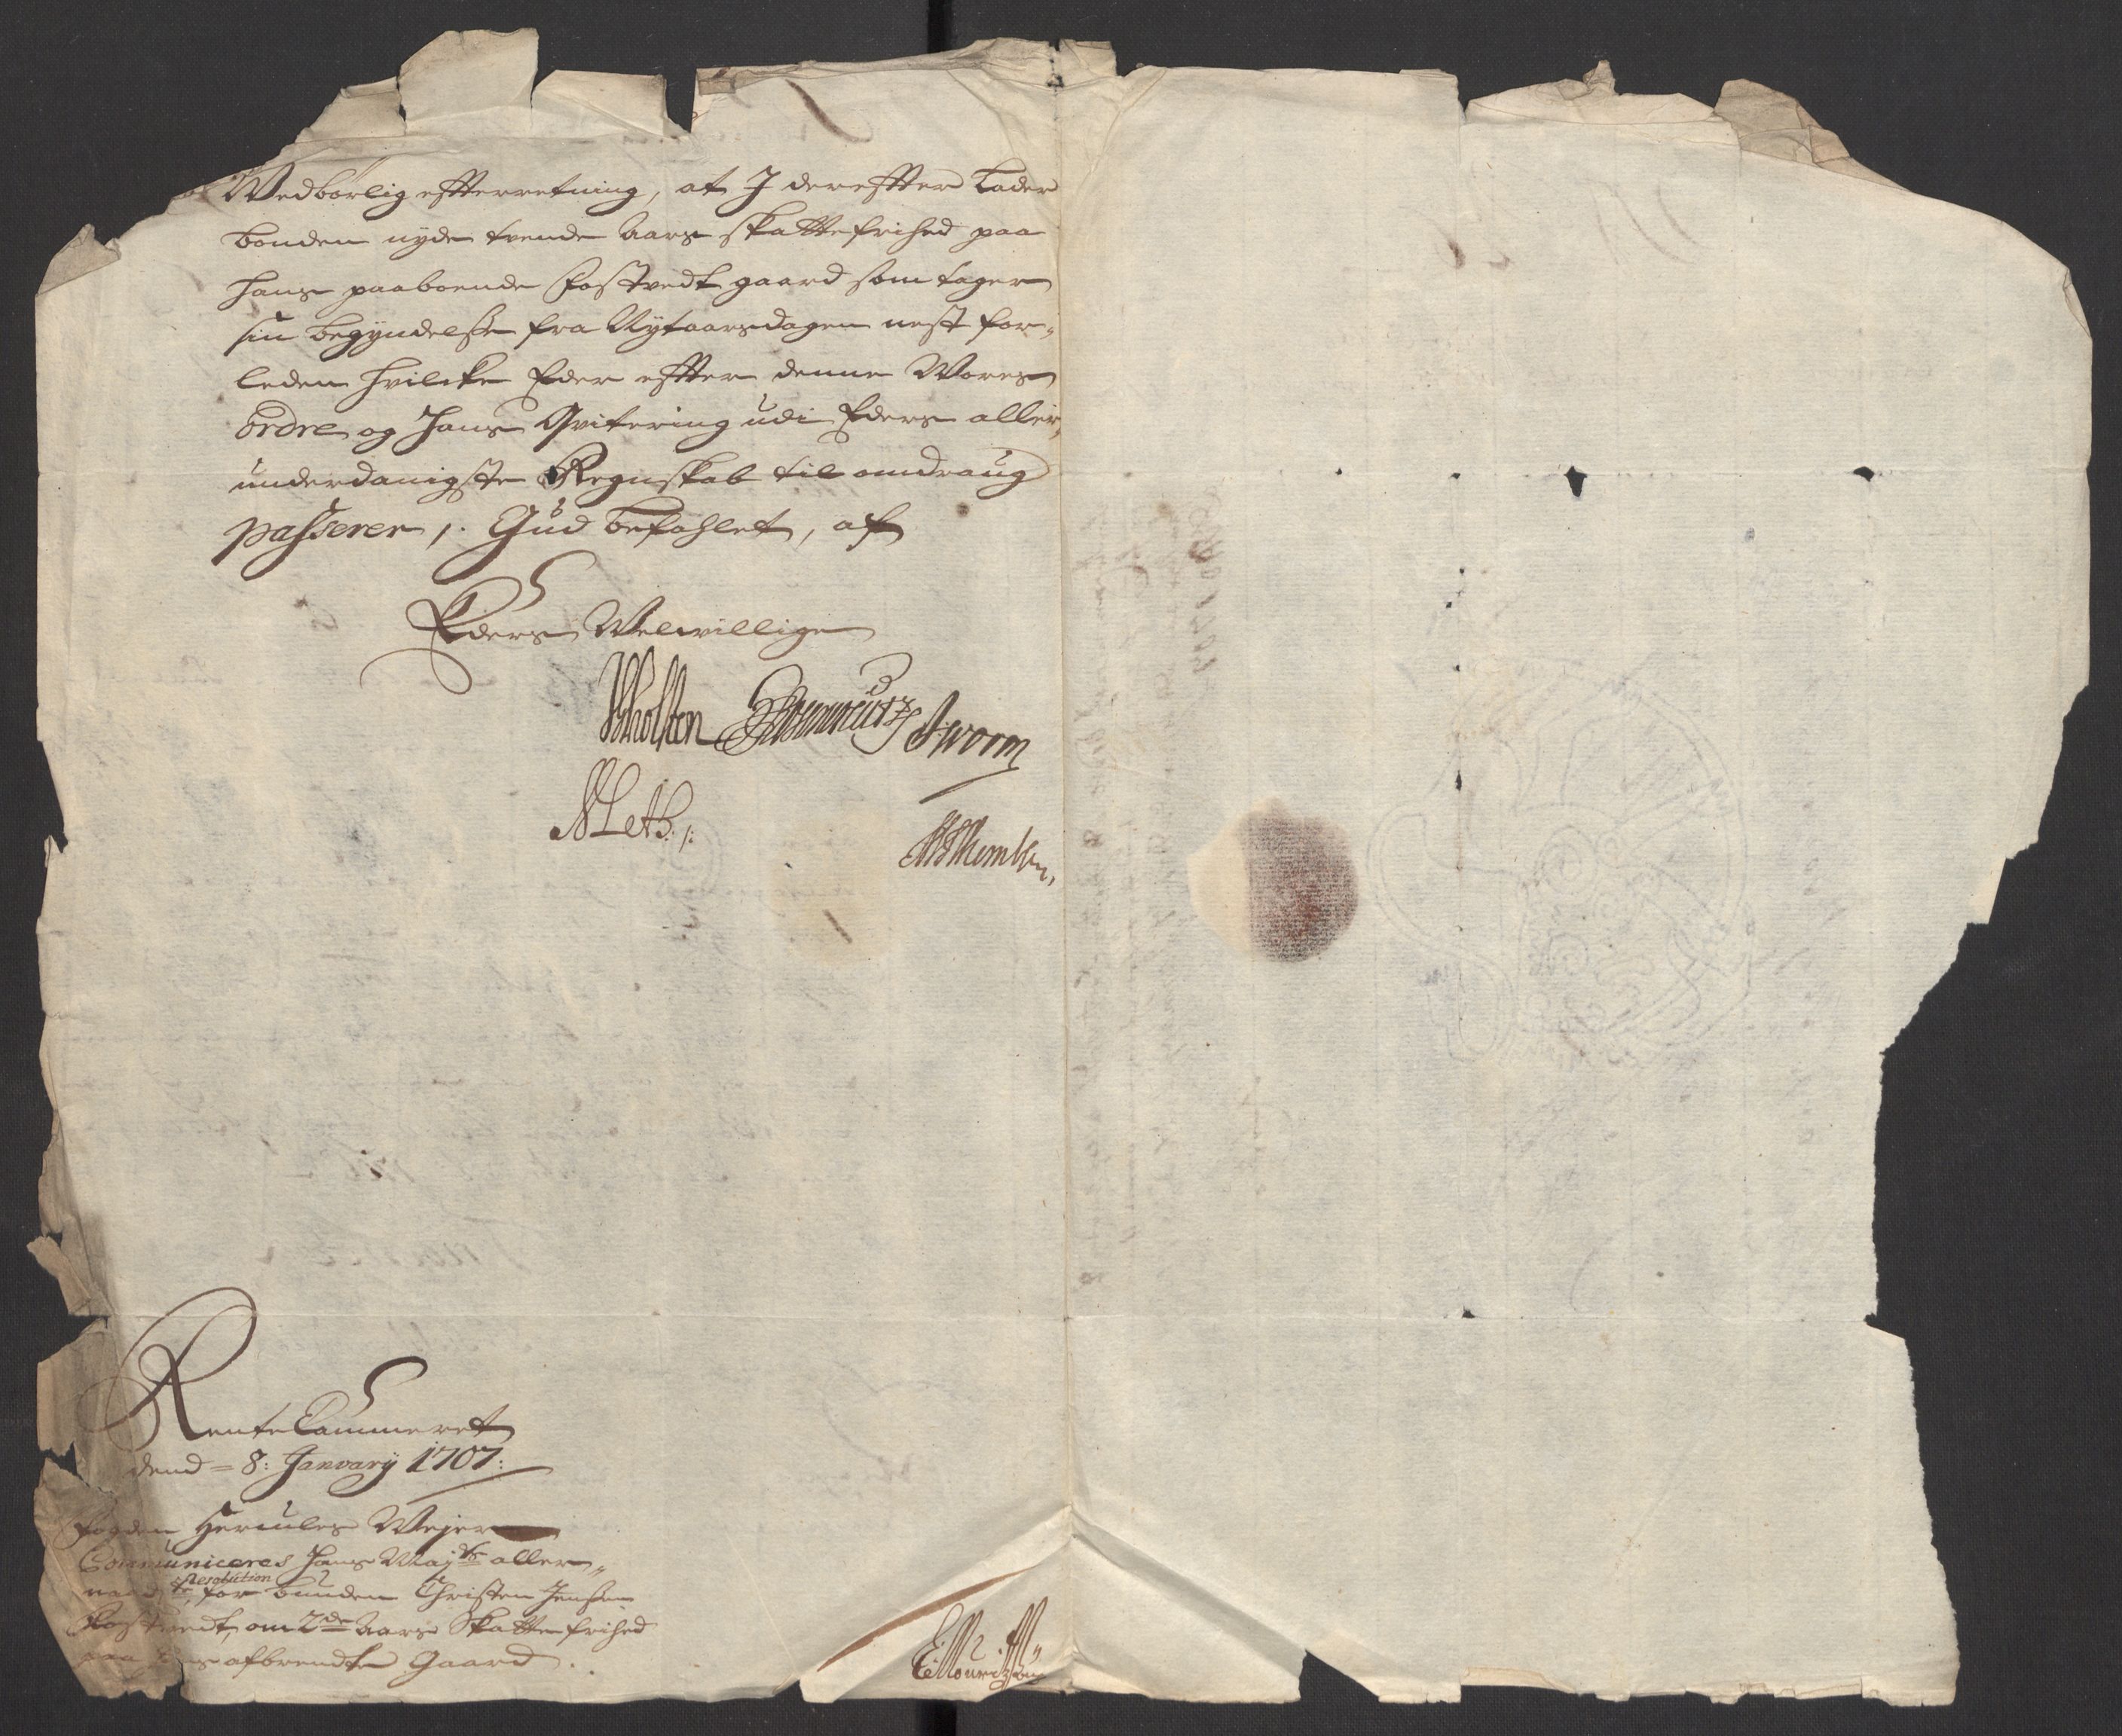 Wedbørlig effterretning, at I dereffter Lader
bonden nyde tvende Aars skattefrihed paa
hans paaboende Fostvedt gaard som tager
sin begyndelsse fra Nytaarsdagen nest for„
leden hvilcke Eder effter denne Wores
ordre og Hans Qvitering udi Eders aller„
underdanigste Regnskab til omdraug
passerer /. Gud befahlet, af
Eders Welwillige
Worm
Rente Cammeret
dend = 8: January 1707:
Fogden Hercules Wejer
Communiceres Hans Mayts aller„
Resolution
for bunden Christen Jensen
Fostvedt, om 2de Aars Skatte frihed
paa hans afbrendte Gaard.